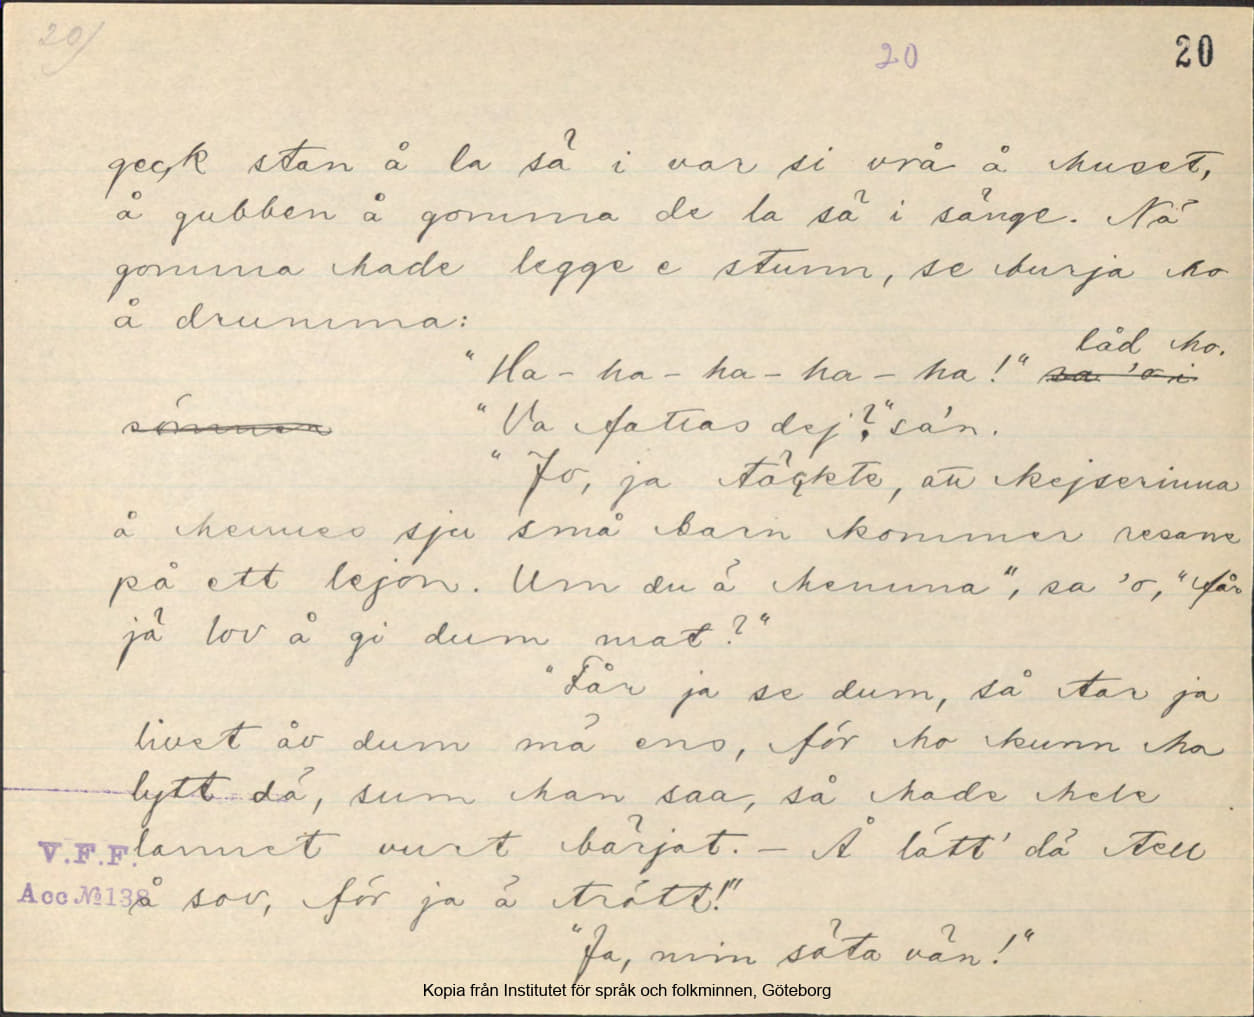 20)
20
20
geçk stan å la sä i var si vrå å huset,
å gubben å gomma de la sä i sänge. Nä
gomma hade legge e stunn, se burja ho
å drumma:
"Ha - ha - ha - ha - ha!" låd ho.
sa 'o i
sömnen "Va fattas dej?" sa'n.
"Jo, ja täçkte, att kejserinna
å hennes sju små barn kommer resane
på ett lejon. Um du ä hemma", sa 'o, "får
jä lov å gi dum mat?"
"Får ja se dum, så tar ja
livet åv dum mä ens, för ho kunn ha
lytt dä, sum han saa, så hade hele
lannet vurt bärjat. - Å lått' dä tell
å sov, för ja ä trött!"
"Ja, min söta vän!"
V.F.F.
Acc №138
Kopia från Institutet för språk och folkminnen, Göteborg